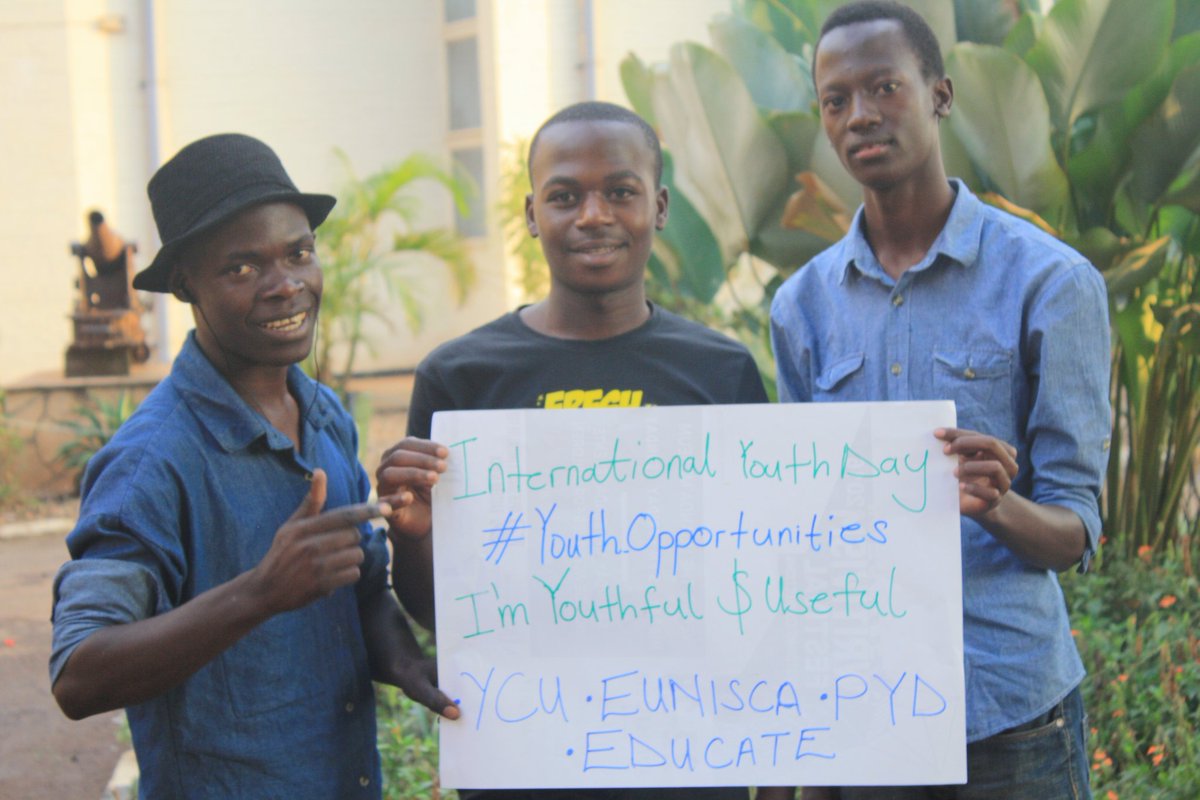 FRESH
International Youth Day
#Youth.Opportunities
I'm Youthful $ Useful
YCU • EUNISCA • PYD
• EDUCATE